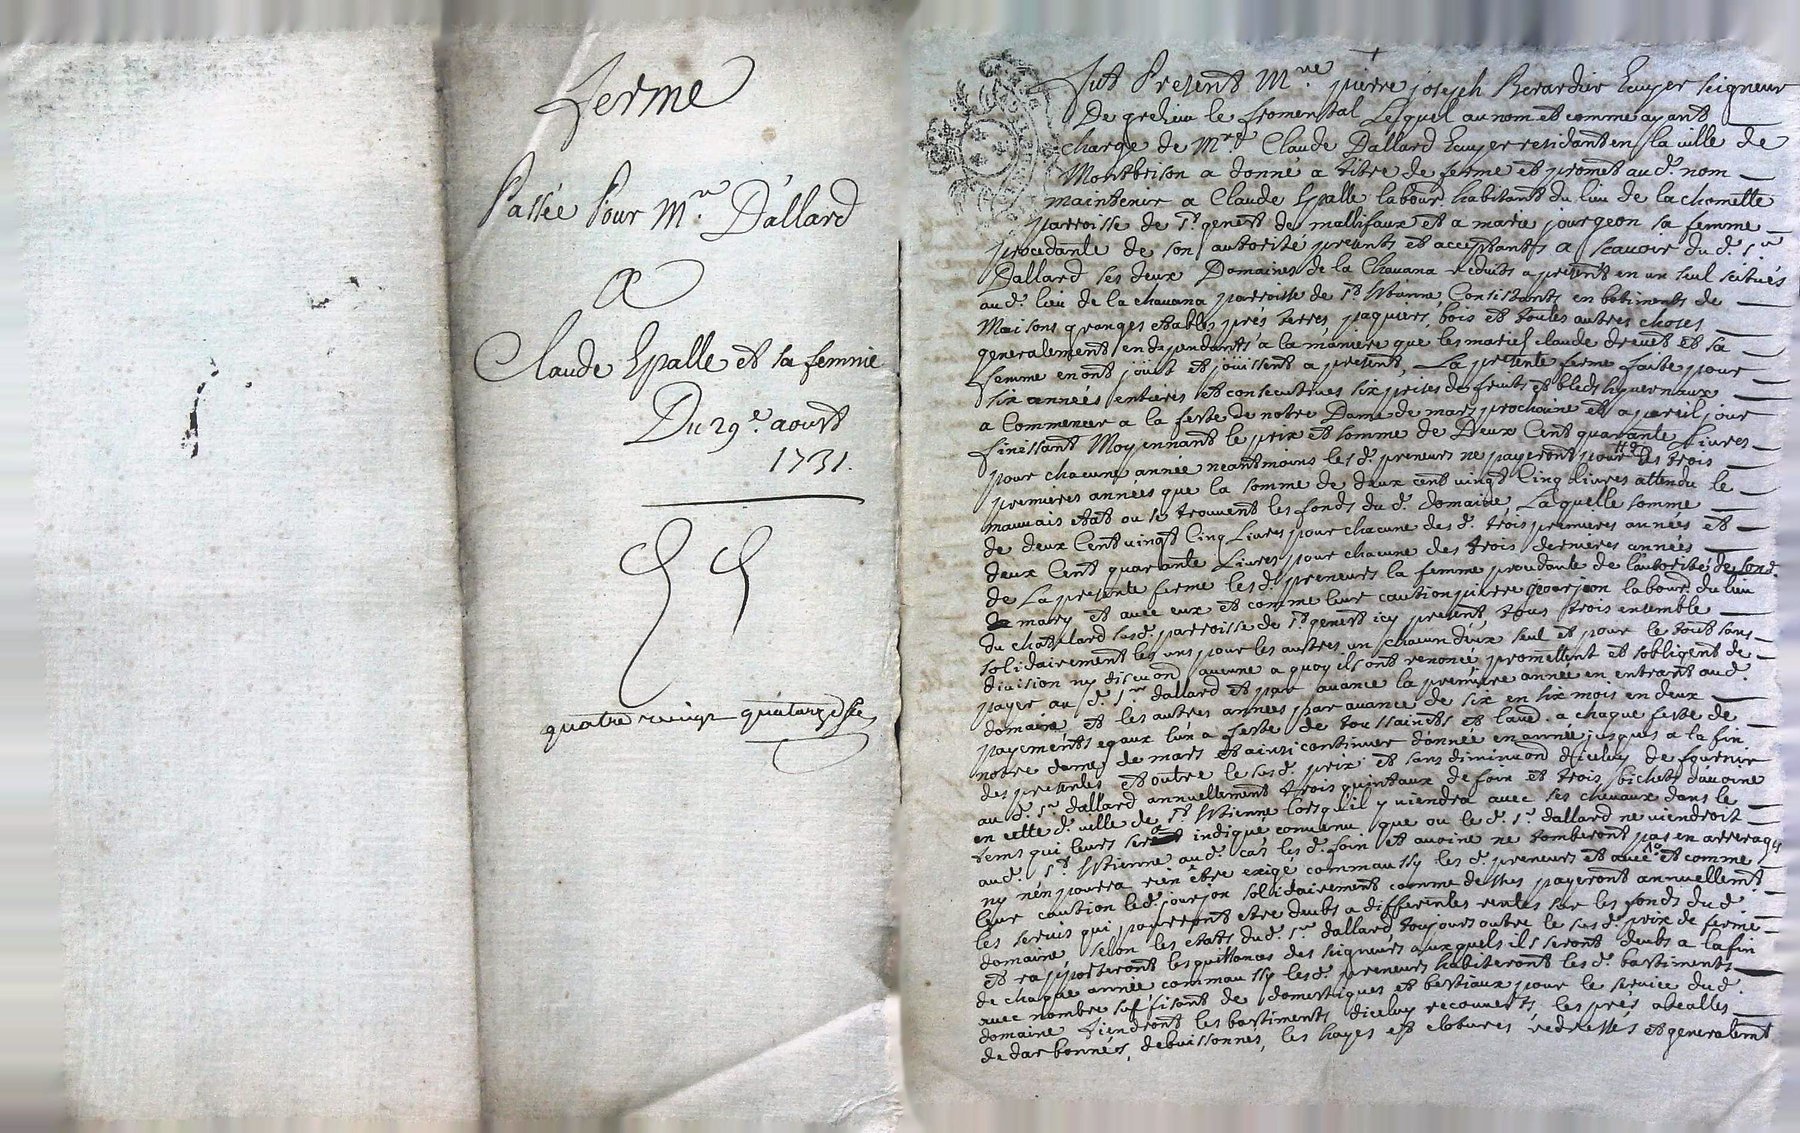 ferme
Passée Pour Mr. Dallard
A
Claude Epalle et sa femme
Du 29e. aoust
1731.
quatre vingt quatorze
fut Present Mre. pierre joseph Berardier Ecuyer seigneur
De grezieu le fromental Lequel au nom et comme ayant
charge de Mre. Claude Dallard Ecuyer residant en la ville de
Montbrison a donné a titre de ferme et promet aud. nom
maintenir a Claude Epalle labour habitant du lieu de la chomette
parroisse de St. genest de mallifaux et a marie jourjeon sa femme
procedante de son autorité presents et acceptants a scavoir dud. Sr.
Dallard ses deux Domaines de la Chavana reduits apresent en un seul scitués
aud. lieu de la chavana parroisse de St. Estienne Consistants en batiments de
Maisons granges etables prés terres paquiers, bois et toutes autres choses
generalement en dependants a la maniere que les mariés claude drevet et sa
femme en ont jouit et jouissent a present, La presente ferme faite pour
six années entieres et consecutives six prises de fruits et bleds hyvernaux
a Commencer a la feste de notre Dame de mars prochaine et a pareil jour
finissant Moyennant le prix et somme de Deux Cent quarante Livres
pour chacune année neantmoins les d. preneurs ne payeront pour les trois
premieres années que la somme de deux cent vingt Cinq livres attendu le
mauvais etat ou se trouvent les fonds du d. Domaine, La quelle somme
de deux Cent vingt Cinq Livres pour chacune des d. trois premieres années et
deux Cent quarante Livres pour chacune des trois dernieres années
de La presente ferme les d. preneurs la femme procedante de l'autorité de sond.
mary et avec eux et comme leur caution pierre jourjon labour. du lieu
du chatelard susd. parroisse de St genest icy present, tous trois ensemble
solidairement les uns pour les autres un chacun d'eux seul et pour le tout sans
division ny discuon aucune a quoy ils ont renoncé promettent et sobligent de
payer au d. Sr dallard et par avance la premiere année en entrant aud.
domaine et les autres années par avance de six en six mois en deux
payements egaux lun a feste de toussaincts et laud. a chaque feste de
notre dame de mars et ainsi continuer d'année en année jusques a la fin
des presentes et outre le susd. prix et sans diminuon diceluy de fournir
au d. Sr. dallard annuellement trois quintaux de foin et trois bichets davoine
en cette d. ville de St Estienne lorsqu'il y viendra avec ses chevaux dans le
tems qui leurs sera indiqué convenu que ou le d. Sr. dallard ne viendroit
aud. St Estienne aud. cas les d. foin et avoine ne tomberont pas en arrerages
ny n'en pourra rien être exigé comm aussy les d. preneurs et avec et comme
leur caution le d. jourjon solidairement comme dessus payeront annuellement
les servis qui pourront etre deubs a differentes rentes sur les fonds du d.
domaine selon les etats du d. Sr dallard toujours outre le susd. prix de ferme
et rapporteront les quittances des seigneurs auxquels ils seront deubs a la fin
de chaque année comm aussy les d. preneurs habiteront les d. bastiments
avec nombre suffisant de domestiques et bestiaux pour le service dud.
domaine tiendront les bastiments diceluy recouverts, les prés atealles
de darbonnés, debuissonnés, les hayes et clotures redressés et generalemt